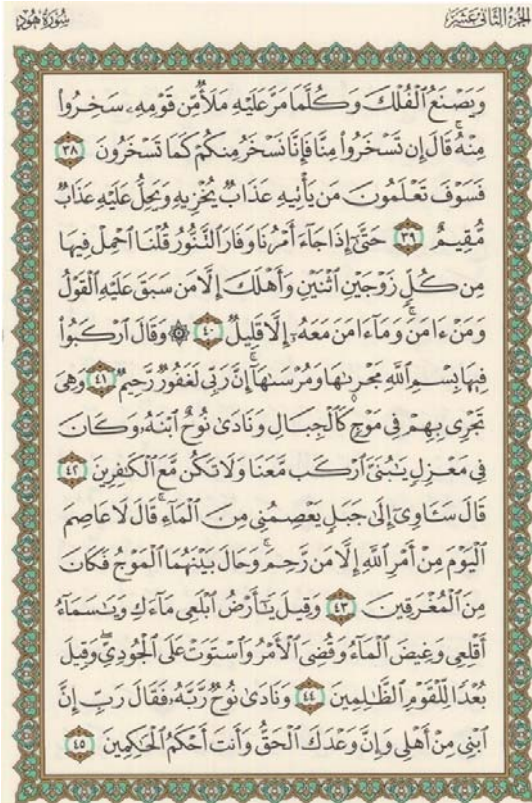 الجزء الثاني عشر
سورة هود
وَيَصْنَعُ ٱلْفُلْكَ وَكُلَّمَا مَرَّ عَلَيْهِ مَلَأٌ مِّن قَوْمِهِۦ سَخِرُوا۟
مِنْهُ ۚ قَالَ إِن تَسْخَرُوا۟ مِنَّا فَإِنَّا نَسْخَرُ مِنكُمْ كَمَا تَسْخَرُونَ ٣٨
فَسَوْفَ تَعْلَمُونَ مَن يَأْتِيهِ عَذَابٌ يُخْزِيهِ وَيَحِلُّ عَلَيْهِ عَذَابٌ
مُّقِيمٌ ٣٩ حَتَّىٰٓ إِذَا جَآءَ أَمْرُنَا وَفَارَ ٱلتَّنُّورُ قُلْنَا ٱحْمِلْ فِيهَا
مِن كُلٍّ زَوْجَيْنِ ٱثْنَيْنِ وَأَهْلَكَ إِلَّا مَن سَبَقَ عَلَيْهِ ٱلْقَوْلُ
وَمَنْ ءَامَنَ ۚ وَمَآ ءَامَنَ مَعَهُۥٓ إِلَّا قَلِيلٌ ٤٠ ۞ وَقَالَ ٱرْكَبُوا۟
فِيهَا بِسْمِ ٱللَّهِ مَجْر۪ىٰهَا وَمُرْسَىٰهَآ ۚ إِنَّ رَبِّى لَغَفُورٌ رَّحِيمٌ ٤١ وَهِىَ
تَجْرِى بِهِمْ فِى مَوْجٍ كَٱلْجِبَالِ وَنَادَىٰ نُوحٌ ٱبْنَهُۥ وَكَانَ
فِى مَعْزِلٍ يَٰبُنَىَّ ٱرْكَب مَّعَنَا وَلَا تَكُن مَّعَ ٱلْكَٰفِرِينَ ٤٢
قَالَ سَـَٔاوِىٓ إِلَىٰ جَبَلٍ يَعْصِمُنِى مِنَ ٱلْمَآءِ ۚ قَالَ لَا عَاصِمَ
ٱلْيَوْمَ مِنْ أَمْرِ ٱللَّهِ إِلَّا مَن رَّحِمَ ۚ وَحَالَ بَيْنَهُمَا ٱلْمَوْجُ فَكَانَ
مِنَ ٱلْمُغْرَقِينَ ٤٣ وَقِيلَ يَٰٓأَرْضُ ٱبْلَعِى مَآءَكِ وَيَٰسَمَآءُ
أَقْلِعِى وَغِيضَ ٱلْمَآءُ وَقُضِىَ ٱلْأَمْرُ وَٱسْتَوَتْ عَلَى ٱلْجُودِىِّ ۖ وَقِيلَ
بُعْدًا لِّلْقَوْمِ ٱلظَّٰلِمِينَ ٤٤ وَنَادَىٰ نُوحٌ رَّبَّهُۥ فَقَالَ رَبِّ إِنَّ
ٱبْنِى مِنْ أَهْلِى وَإِنَّ وَعْدَكَ ٱلْحَقُّ وَأَنتَ أَحْكَمُ ٱلْحَٰكِمِينَ ٤٥